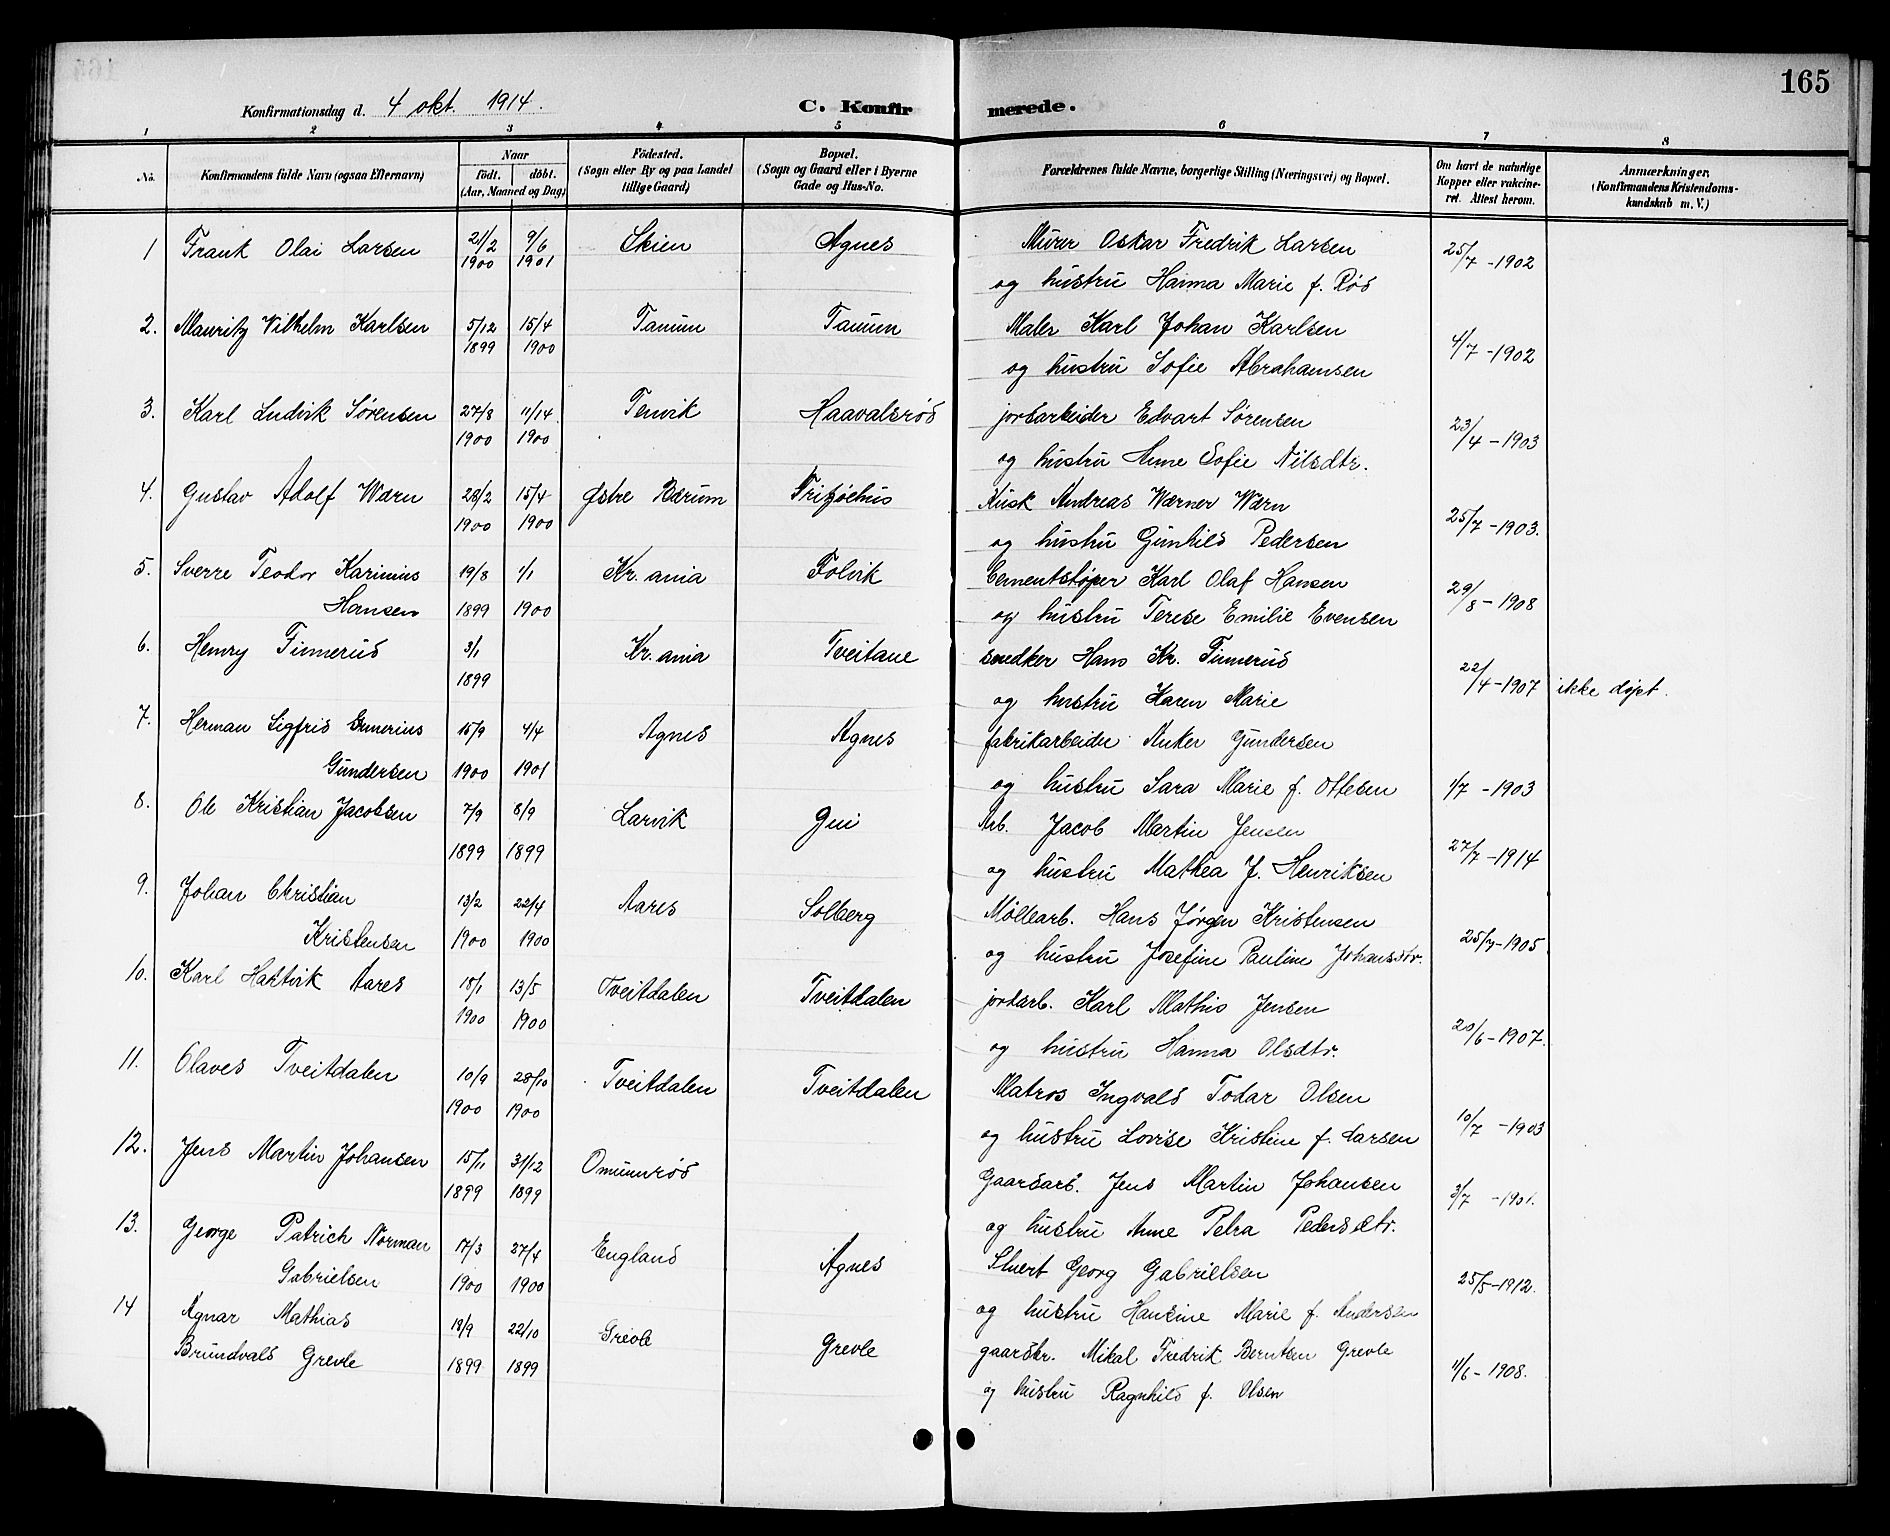 165
Konfirmationsdag d. 4 okt. 1914. C. Konfirmerede.
1 2 3 4 5 6 7 8
No. Konfirmandens fulde Navn (ogsaa Efternavn) Naar födt. döbt. (Aar, Maaned og Dag) Födested. (Sogn eller By og paa Landet tillige Gaard) Bopæl. (Sogn og Gaard eller i Byerne Gade og Hus-No. Forældrenes fulde Navne, borgerlige Stilling (Næringsvei) og Bopæl. Om havt de naturlige Kopper eller vakcineret. Attest herom. Anmærkninger. (Konfirmandens Kristendomskundskab m. V.)
1 Frank Olai Larsen 21/2 9/6 Skien Agnes Murer Oskar Fredrik Larsen 25/7 - 1902
1900 1901 og hustru Hanna Marie f. Røs
2. Mauritz Vilhelm Karlsen 5/12 15/4 Tanum Tanum Maler Karl Johan Karlsen 4/7 - 1902
1899 1900 og hustru Sofie Abrahamsen
3. Karl Ludvik Sørensen 27/8 11/14 Tenvik Haavalsrød jordarbeider Edvart Sørensen 23/4 - 1903
1900 1900 og hustru Anne Sofie Nilsdtr.
4. Gustav Adolf Wærn 28/2 15/4 Østre Bærum Fritzøehus Kusk Andreas Wærner Wærn 25/7 - 1903.
1900 1900 og hustru Gunhild Pedersen
5. Sverre Teodor Karinius 19/8 1/1 Kr. ania Folvik Cementstøper Karl Olaf Hansen 29/8 - 1908
Hansen 1899 1900 og hustru Terese Emilie Evensen
6. Henry Finnerud 3/1 Kr. ania Tveitane snedker Hans Kr. Finnerud 22/4 - 1907 ikke døpt.
1899 og hustru Karen Marie
7. Herman Sigfrid Gunerius 15/9 4/4 Agnes Agnes fabrikarbeider Anker Gundersen
Gundersen 1900 1901 og hustru Sara Marie f. Ottesen 1/7 - 1903
8. Ole Kristian Jacobsen 7/9 8/9 Larvik Gui Arb. Jacob Martin Jensen 27/7 - 1914
1899 1899 og hustru Mathea J. Henriksen
9. Johan Christian 13/2 22/4 Aares Solberg Møllearb. Hans Jørgen Kristensen
Kristensen 1900 1900 og hustru Josefine Pauline Johansdtr. 25/7 - 1905
10. Karl Hartvik Aares 18/1 13/5 Tveitdalen Tveitdalen jordarb. Karl Mathis Jensen 20/6 - 1907.
1900 1900 og hustru Hanna Olsdtr.
11. Olaves Tveitdalen 10/9 28/10 Tveitdalen Tveitdalen Matros Ingvald Todar Olsen 10/7 - 1903
1900 1900 og hustru Lovise Kristine f. Larsen
12. Jens Martin Johansen 15/11 31/12 Omunrød Gaardarb. Jens Martin Johansen 3/7 - 1901.
1899 1899 og hustru Anne Petra Pedersdtr.
13. George Patrich Norman 17/3 27/4 England Agnes Stuert Georg Gabrielsen 25/5 - 1912.
Gabrielsen 1900 1900 og hustru Hansine Marie f. Andersen
14 Agnar Mathias 19/9 22/10 Grevle Grevle gaardbr. Mikal Fredrik Berntsen Grevle 11/6 - 1908.
Brundvald Grevle 1899 1899 og hustru Ragnhild f. Olsen